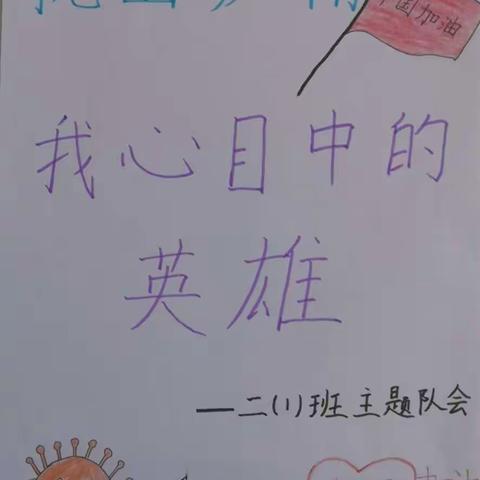 中国加油
我心目中的
英雄
—二(1)班主题队会